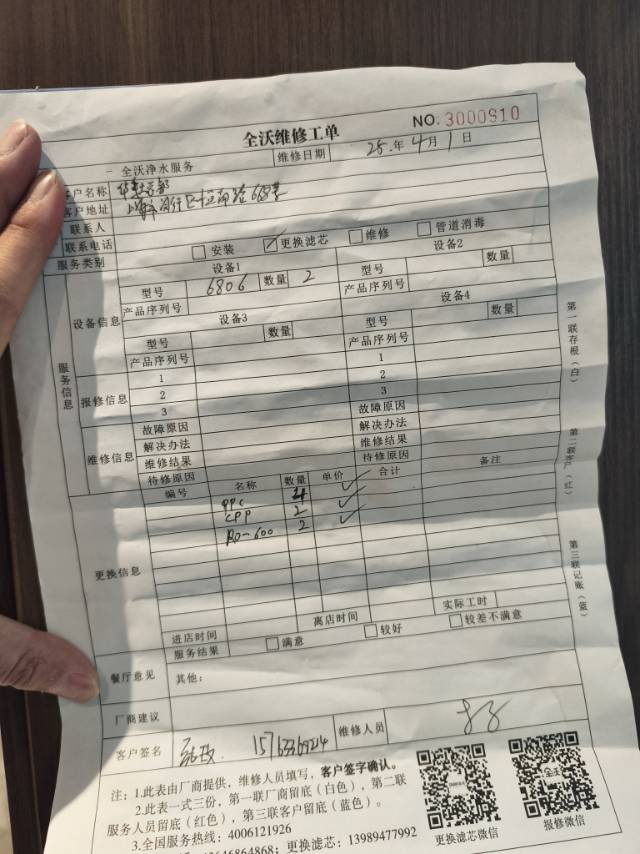 NO: 3000910
全沃维修工单
一 全沃净水服务 维修日期 25.年 4月1日
客户名称
客户地址 685号
联系人
联系电话
服务类别 安装 更换滤芯 维修 管道消毒
设备1 设备2
服务信息 设备信息 型号 6806 数量 2 型号 数量
产品序列号 产品序列号
设备3 设备4
型号 数量 型号 数量
产品序列号 产品序列号
报修信息 1 1
2 2
3 3
维修信息 故障原因 故障原因
解决办法 解决办法
维修结果 维修结果
待修原因 待修原因
更换信息 编号 名称 数量 单价 合计 备注
PPC 4 ✓
CPP 2 ✓
RO-600 2 ✓
进店时间 离店时间 实际工时
餐厅意见 服务结果 满意 较好 较差不满意
其他:
厂商建议
客户签名 维修人员
注：1.此表由厂商提供，维修人员填写，客户签字确认。
2.此表一式三份，第一联厂商留底（白色），第二联
服务人员留底（红色），第三联客户留底（蓝色）。
3.全国服务热线：4006121926
更换滤芯：13989477992
更换滤芯微信 报修微信
全沃
第一联存根（白）
第二联客户（红）
第三联记账（蓝）